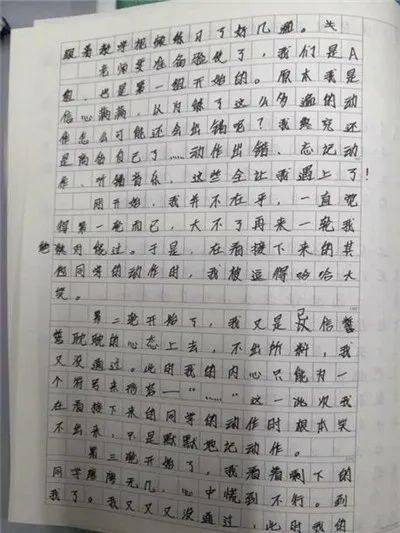 跟着教学把做练习了好几遍。
老师要准备验收了，我们是A
组，也是第一组开始的。原本我是
信心满满，认为练了这么多遍的动
作怎么可能还会出错呢？我终究还
是高估自己了……动作出错、忘记动
作、听错音乐，这些全让我遇上了！
刚开始，我并不在乎，一直觉
得第一轮而已，大不了再来一轮我
绝对能过。于是，在看接下来的其
他同学的动作时，我被逗得哈哈大
笑。
第二轮开始了，我又是以信誓
誓耽耽的心态上去，不出所料，我
又没通过。此时我的内心只能用一
个符号来形容——“……”这一次我
在看接下来的同学的动作时根本笑
不出来，只是默默地记动作。
第三轮开始了，我看着剩下的
同学寥寥无几，心中慌到不行。到
我了。我又又又没通过，此时我的